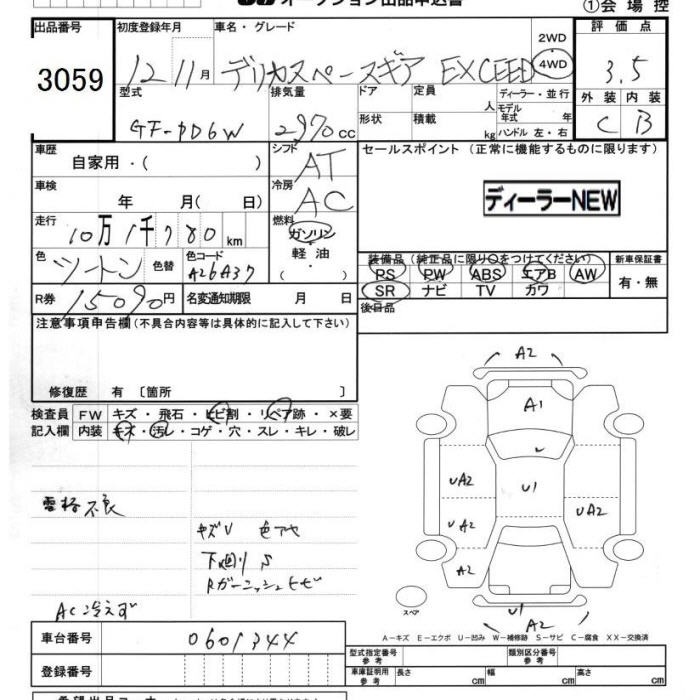 オークション出品申込書
①会場控
出品番号 初度登録年月 車名・グレード 評価点
3059 12 11月 デリカスペースギア EXCEED 2WD 4WD 3.5
型式 排気量 ドア 定員 人 ディーラー・並行 外装 内装
モデル年式 年
GF-PD6W 2970cc 形状 積載 kg ハンドル 左・右 C B
車歴 シフト セールスポイント (正常に機能するものに限ります)
自家用・( ) AT
車検 年 月( 日) 冷房 AC
ディーラーNEW
走行 10万1千780km 燃料 ガソリン・軽油・( )
色 ツートン 色替 色コード A26A37
装備品(純正品に限り○をつけてください) 新車保証書
PS PW ABS エアB AW 有・無
SR ナビ TV カワ
R券 15090円 名変通知期限 月 日
後日品
注意事項申告欄(不具合内容等は具体的に記入して下さい)
修復歴 有〔箇所 〕
検査員 FW キズ・飛石・ヒビ割・リペア跡・×要
記入欄 内装 キズ・汚レ・コゲ・穴・スレ・キレ・破レ
A2
A1
U1
UA2
UA2
UA2
A2
U1
A2
スペア
不良
キズV 色アセ
下廻りS
Rガーニッシュヒビ
AC冷えず
A―キズ E―エクボ U―凹み W―補修跡 S―サビ C―腐食 XX―交換済
車台番号 0601344
型式指定番号 参考 類別区分番号 参考
登録番号
車庫証明用 参考 長さ cm 幅 cm 高さ cm